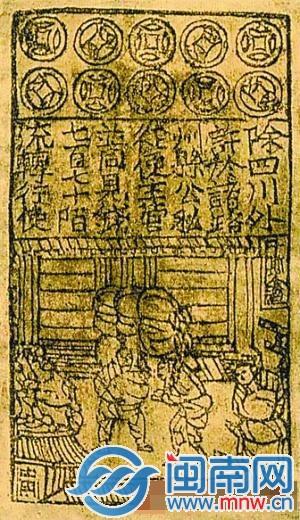 除四川外
許於諸路
州縣公私
從便主管
並同見錢
七百七十陌
流轉行使
闽南网
www.mnw.cn